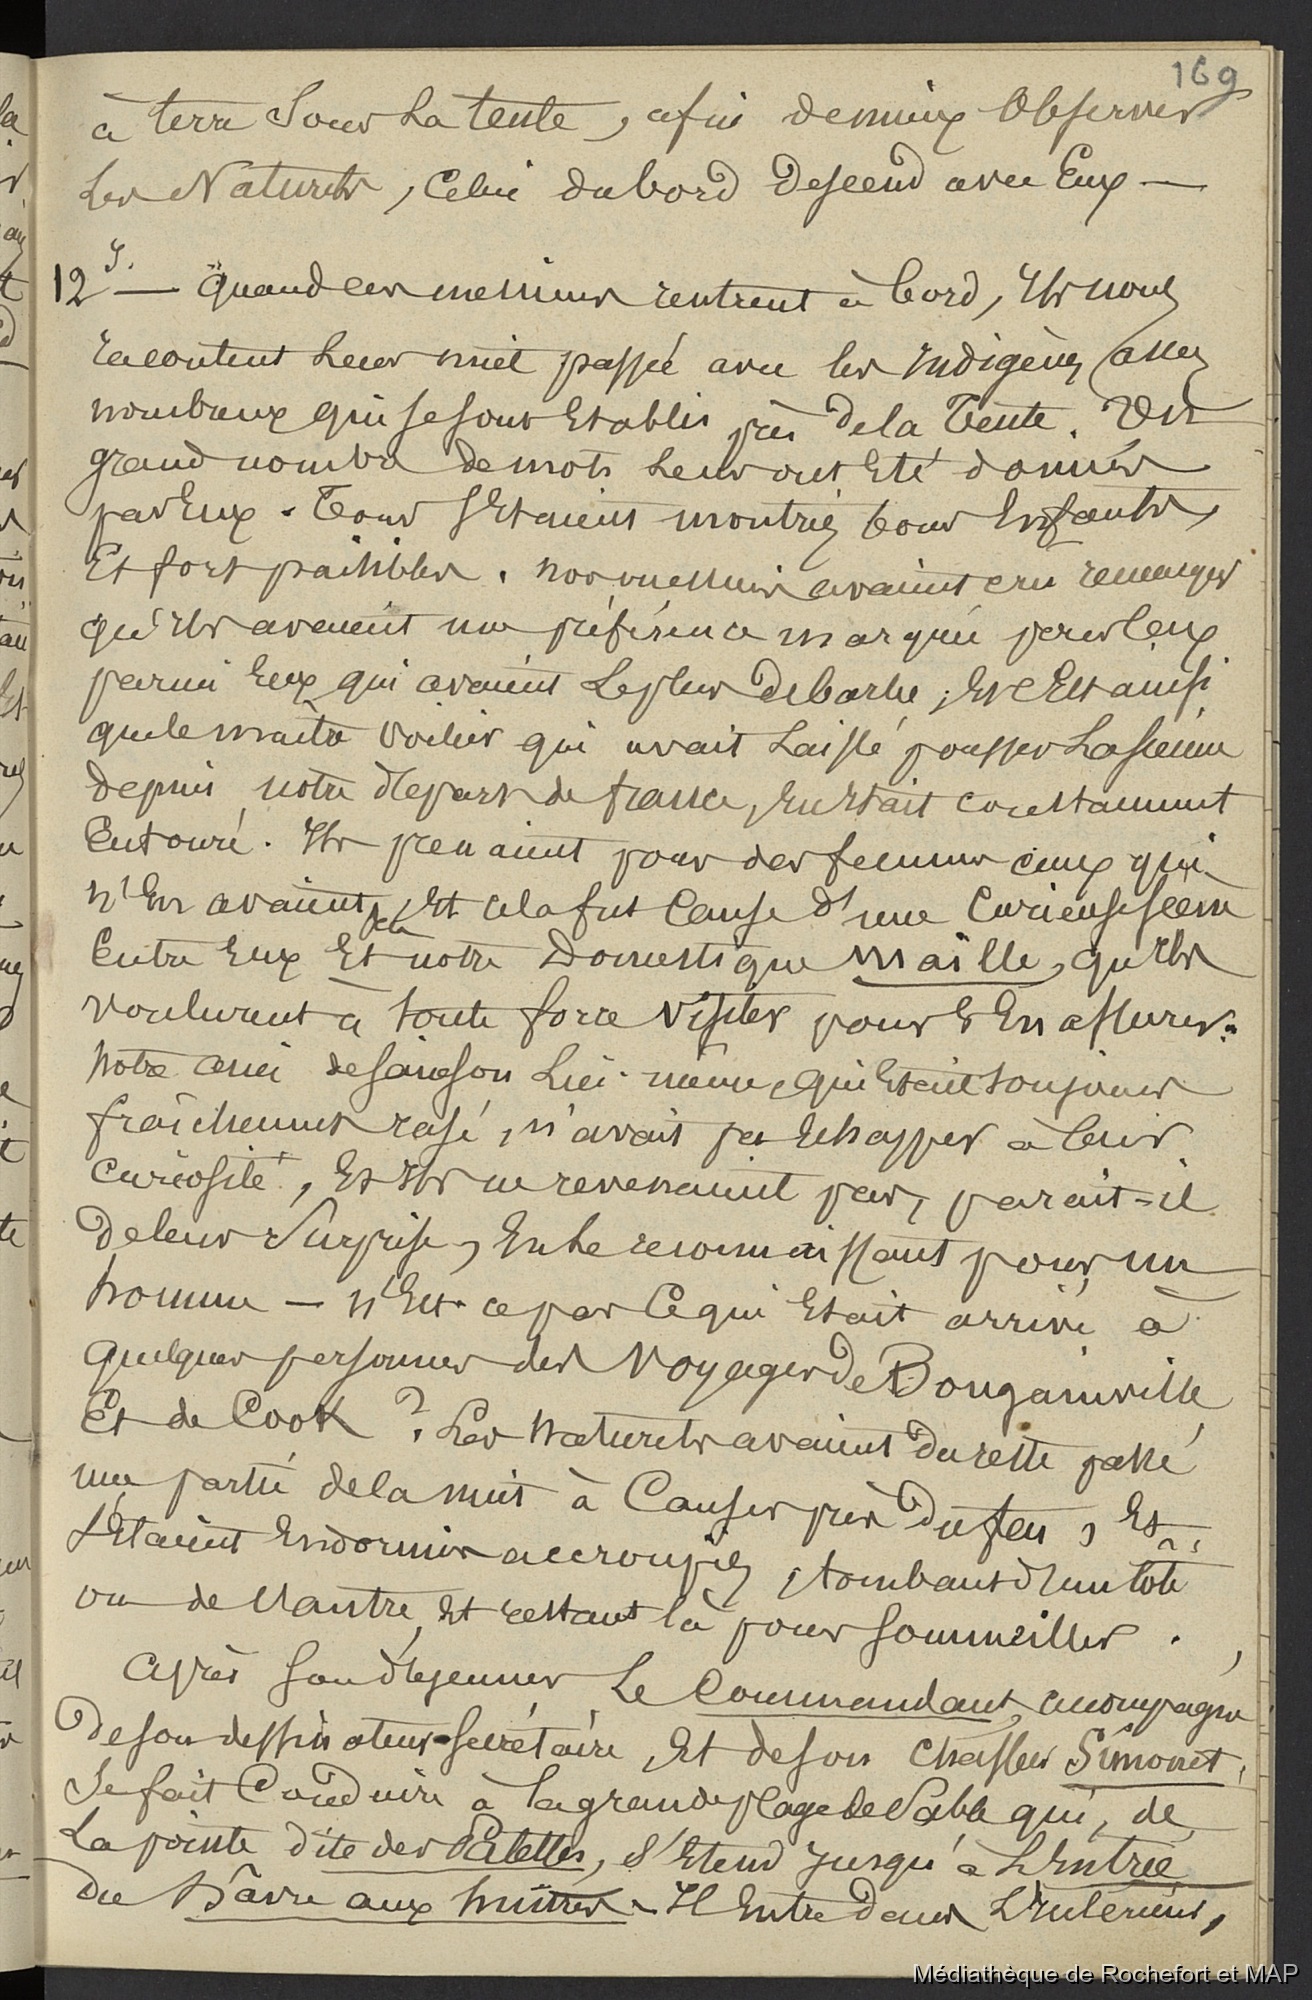 169
à terre sous la tente, afin de mieux Observer
Les Naturels, Celui du bord Descend avec Eux —
12 J. — Quand ces messieurs rentrent à bord, Ils nous
racontent leur nuit passée avec les Indigènes assez
nombreux qui se sont Etablis près de la Tente. Un
grand nombre de mots leur ont Eté donnés
par Eux. Tous s'Etaient montrés bons Enfants,
Et fort paisibles. nos messieurs avaient cru remarquer
qu'Ils avaient une préférence marquée pour ceux
parmi Eux qui avaient Le plus de barbe, Et c'Est ainsi
que le maître Voilier qui avait Laissé pousser La sienne
depuis notre départ de france, En Etait constamment
Entouré. Ils prenaient pour des femmes ceux qui
n'En avaient, Et cela fut Cause d'une Curieuse scène
Entre Eux Et notre Domestique Maille, qu'Ils
voulurent à toute force Visiter pour s'En assurer.
Notre ami de Sainson Lui-même, qui Etait toujours
fraîchement rasé, n'avait pu Echapper à leur
Curiosité, Et Ils ne revenaient pas, paraît-il
De leur Surprise, En Le reconnaissant pour un
homme — N'Est-ce pas Ce qui Etait arrivé à
Quelques personnes des Voyages de Bougainville
Et de Cook ? Les Naturels avaient du reste passé
une partie de la nuit à Causer près Du feu, Et
s'Etaient Endormis accroupis, tombant d'un côté
ou de l'autre, Et restant là pour sommeiller.
Après son déjeuner Le Commandant, accompagné
De son dessinateur-secrétaire, Et de son chasseur Simonet,
Se fait Conduire à la grande plage de Sable qui, de
La pointe dite des Galettes, s'Etend Jusqu'à L'Entrée
Du Hâvre aux huîtres. Il Entre Dans L'Intérieur,
Médiathèque de Rochefort et MAP